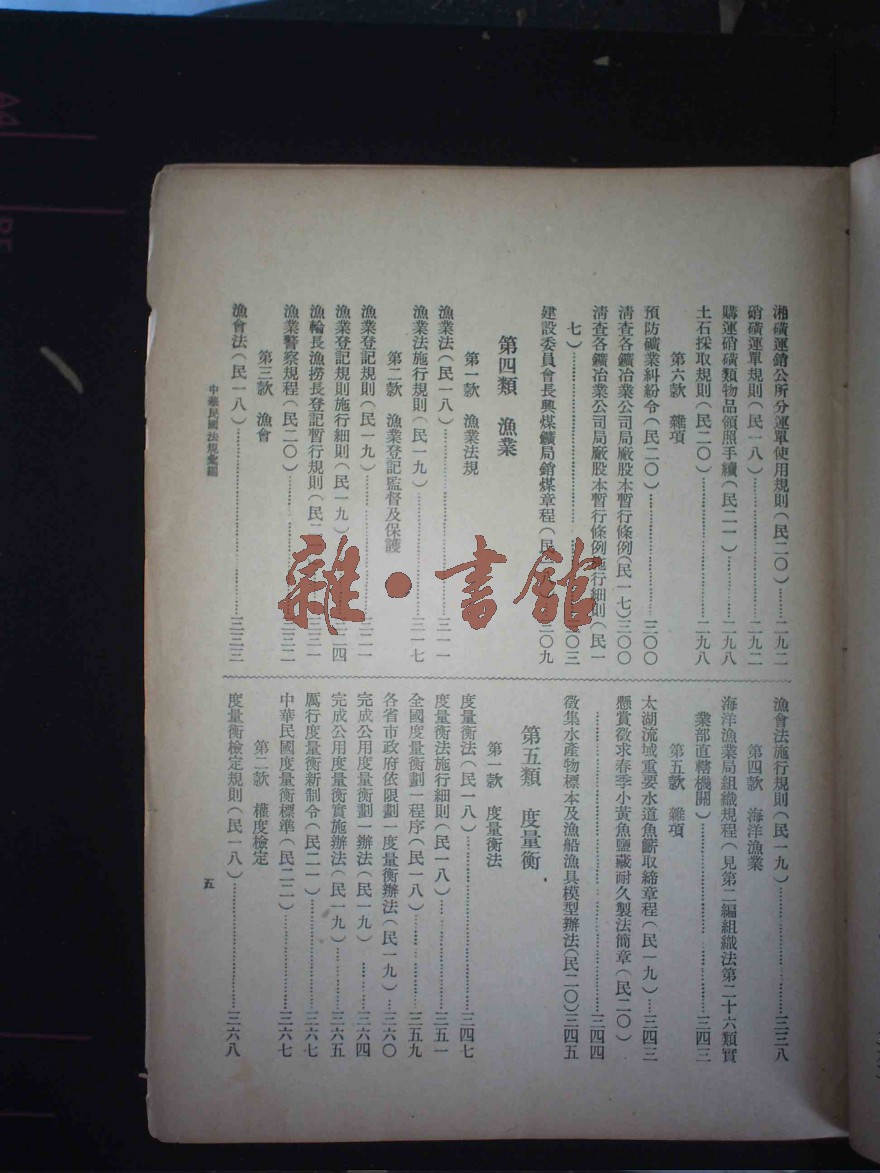 湘磺運銷公所分運單使用規則(民二〇)……二九二
硝磺運單規則(民一八)……二九二
購運硝磺類物品領照手續(民二一)……二九八
土石採取規則(民二〇)……二九八
第六款 雜項
預防礦業糾紛令(民二〇)……三〇〇
清查各鑛冶業公司局廠股本暫行條例(民一七)三〇〇
清查各鑛冶業公司局廠股本暫行條例施行細則(民一
七)……三〇三
建設委員會長興煤鑛局銷煤章程(民……三〇九
第四類 漁業
第一款 漁業法規
漁業法(民一八)……三一一
漁業法施行規則(民一九)……三一七
第二款 漁業登記監督及保護
漁業登記規則(民一九)……三二一
漁業登記規則施行細則(民一九)……二四
漁輪長漁撈長登記暫行規則(民二……三三一
漁業警察規程(民二〇)……三三二
第三款 漁會
漁會法(民一八)……三三三
中華民國法規彙編
漁會法施行規則(民一九)……三三八
第四款 海洋漁業
海洋漁業局組織規程(見第二編組織法第二十六類實
業部直轄機關)……三四三
第五款 雜項
太湖流域重要水道魚籪取締章程(民一九)…三四三
懸賞徵求春季小黃魚鹽藏耐久製法簡章(民二〇)
……三四四
徵集水產物標本及漁船漁具模型辦法(民二〇)三四五
第五類 度量衡
第一款 度量衡法
度量衡法(民一八)……三四七
度量衡法施行細則(民一八)……三五一
全國度量衡劃一程序(民一八)……三五九
各省市政府依限劃一度量衡辦法(民一九)…三六〇
完成公用度量衡劃一辦法(民一九)……三六四
完成公用度量衡實施辦法(民一九)……三六五
厲行度量衡新制令(民二一)……三六七
中華民國度量衡標準(民二二)……三六七
第二款 權度檢定
度量衡檢定規則(民一八)……三六八
五
雜·書館
A4